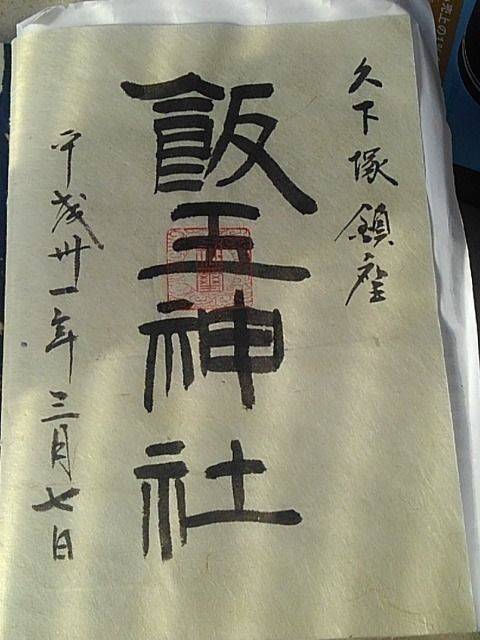 久下塚鎮座
飯玉神社
平成卅一年三月七日